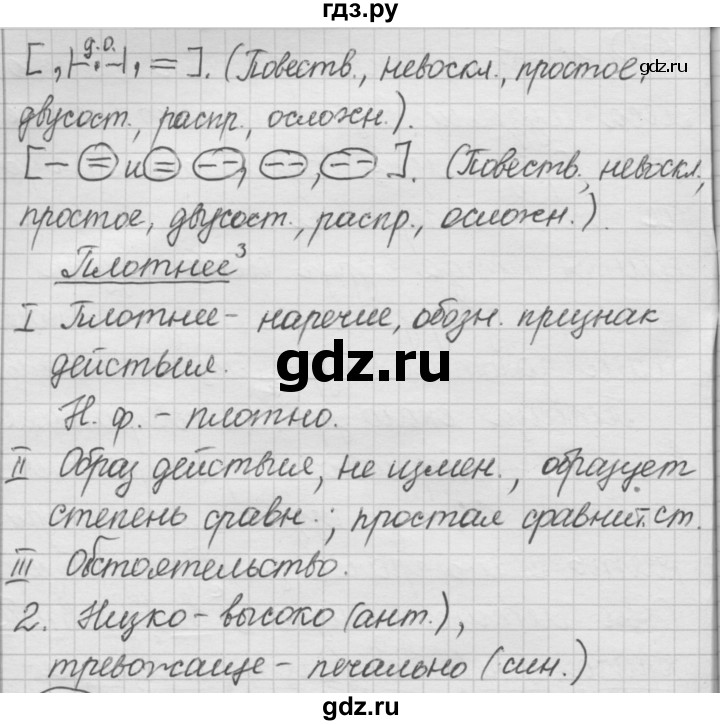 гдз.ру
д.о.
[ , |-.-.|, = ]. (Повеств., невоскл., простое,
двусост., распр., осложн.).
[ – = и = – –, – –, – – ]. (Повеств., невоскл.,
простое, двусост., распр., осложн.).
Плотнее³
I Плотнее – наречие, обозн. признак
действия.
gdz.ru
Н. ф. – плотно.
II Образ действия, не измен., образует
степень сравн.; простая сравнит. ст.
III Обстоятельство.
2. Низко – высоко (ант.),
тревожаще – печально (син.)
gdz.ru